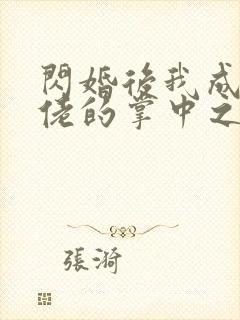 閃婚後我成
佬的掌中之
張漪